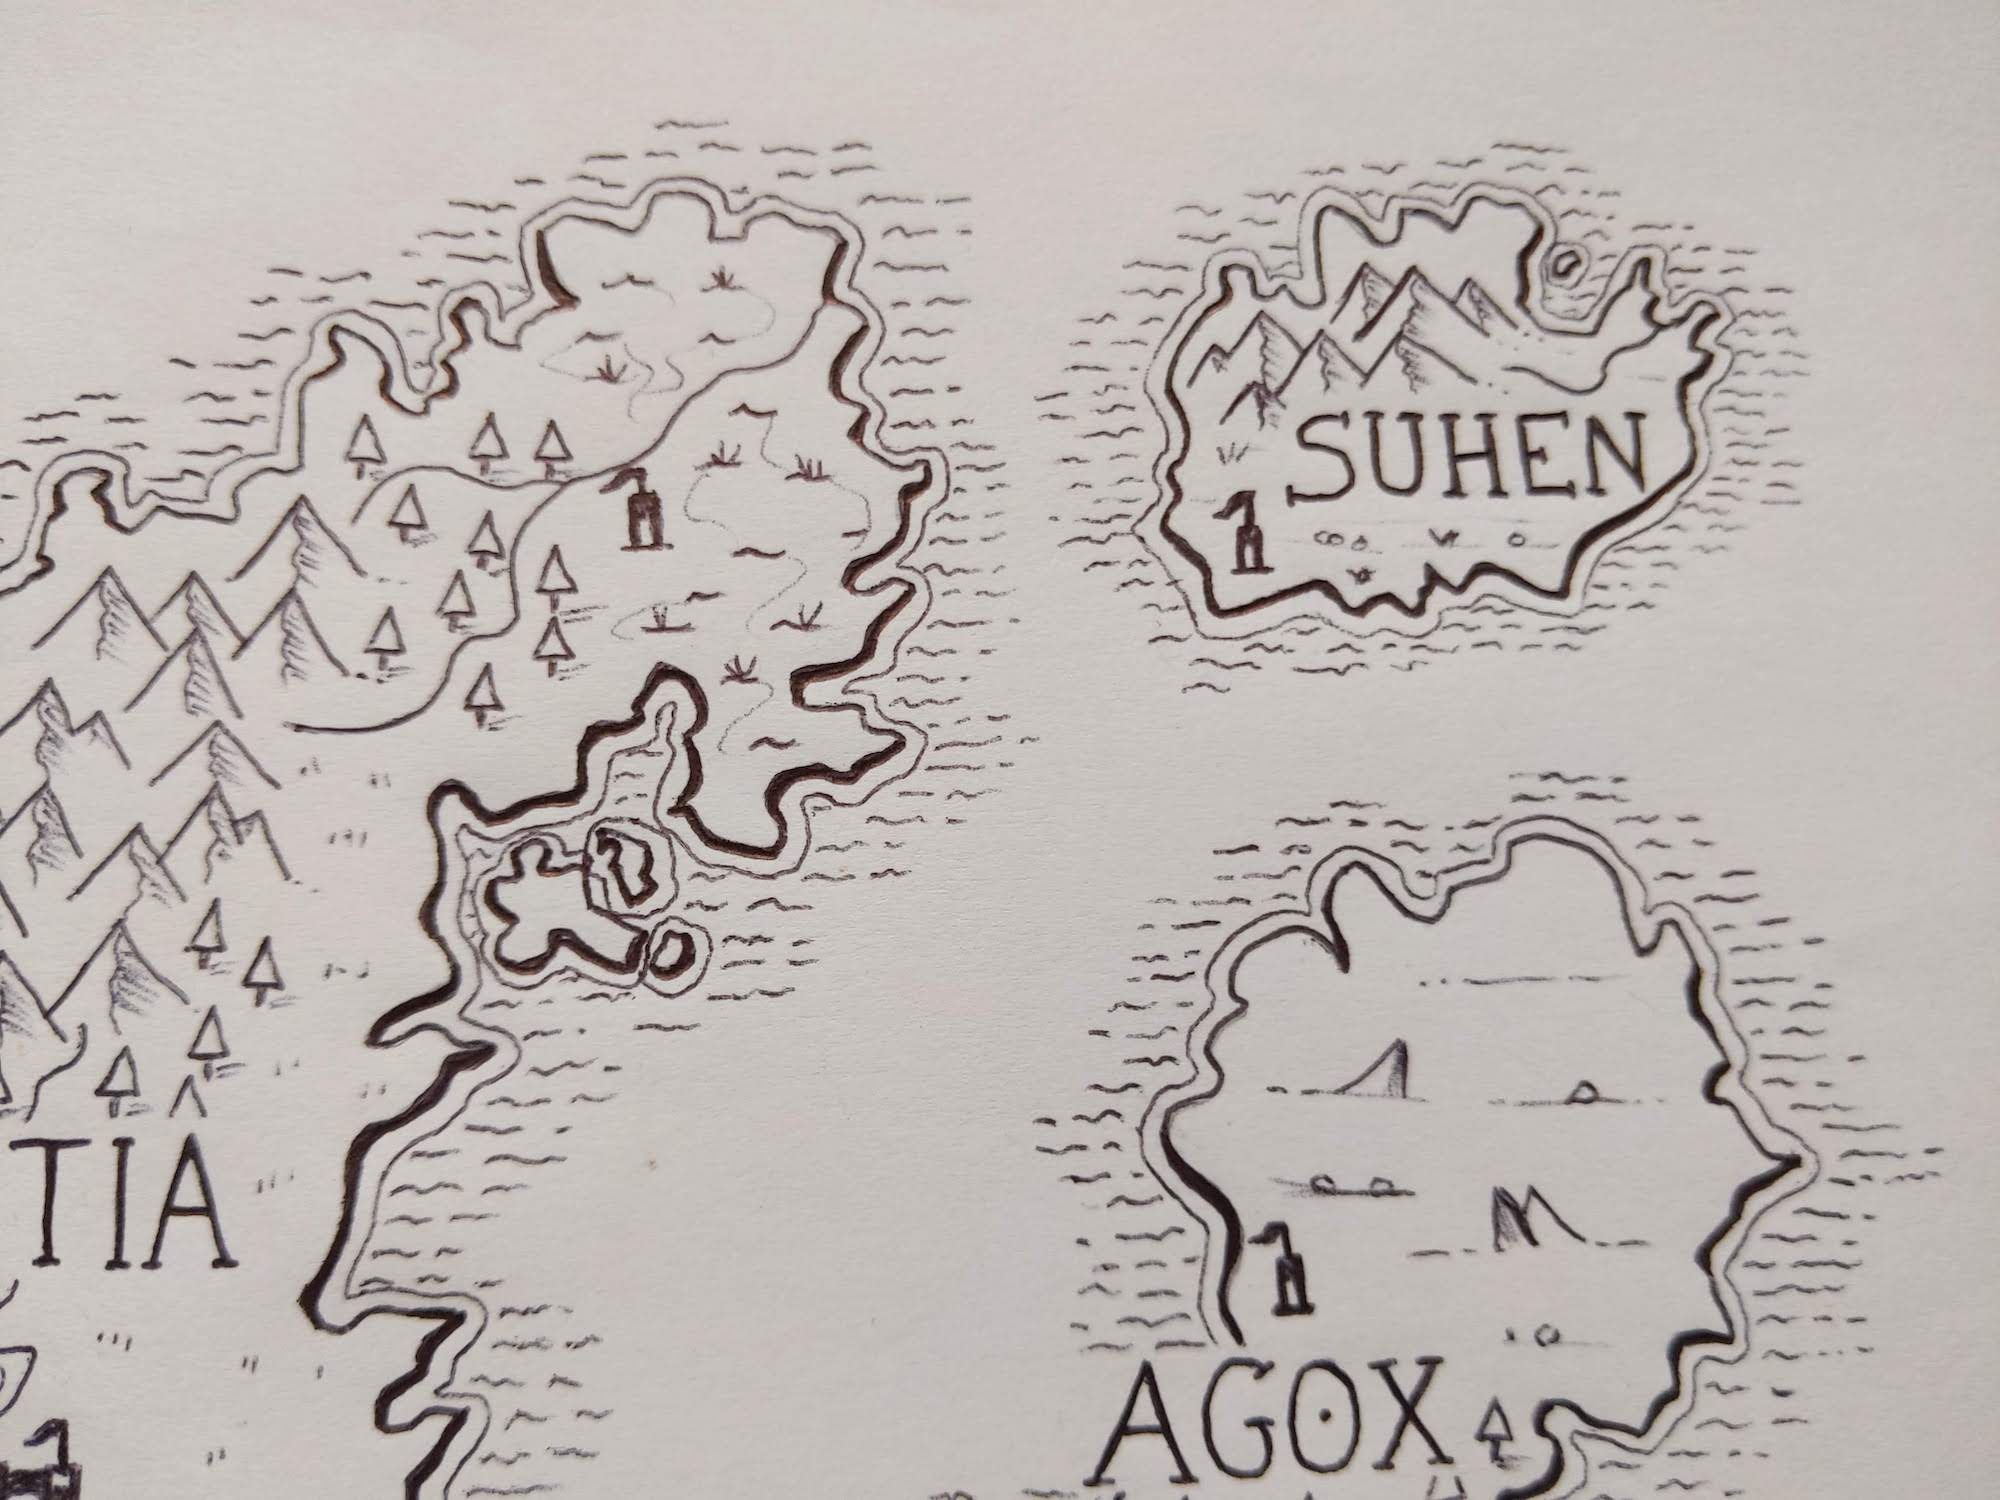 SUHEN
TIA
AGOX